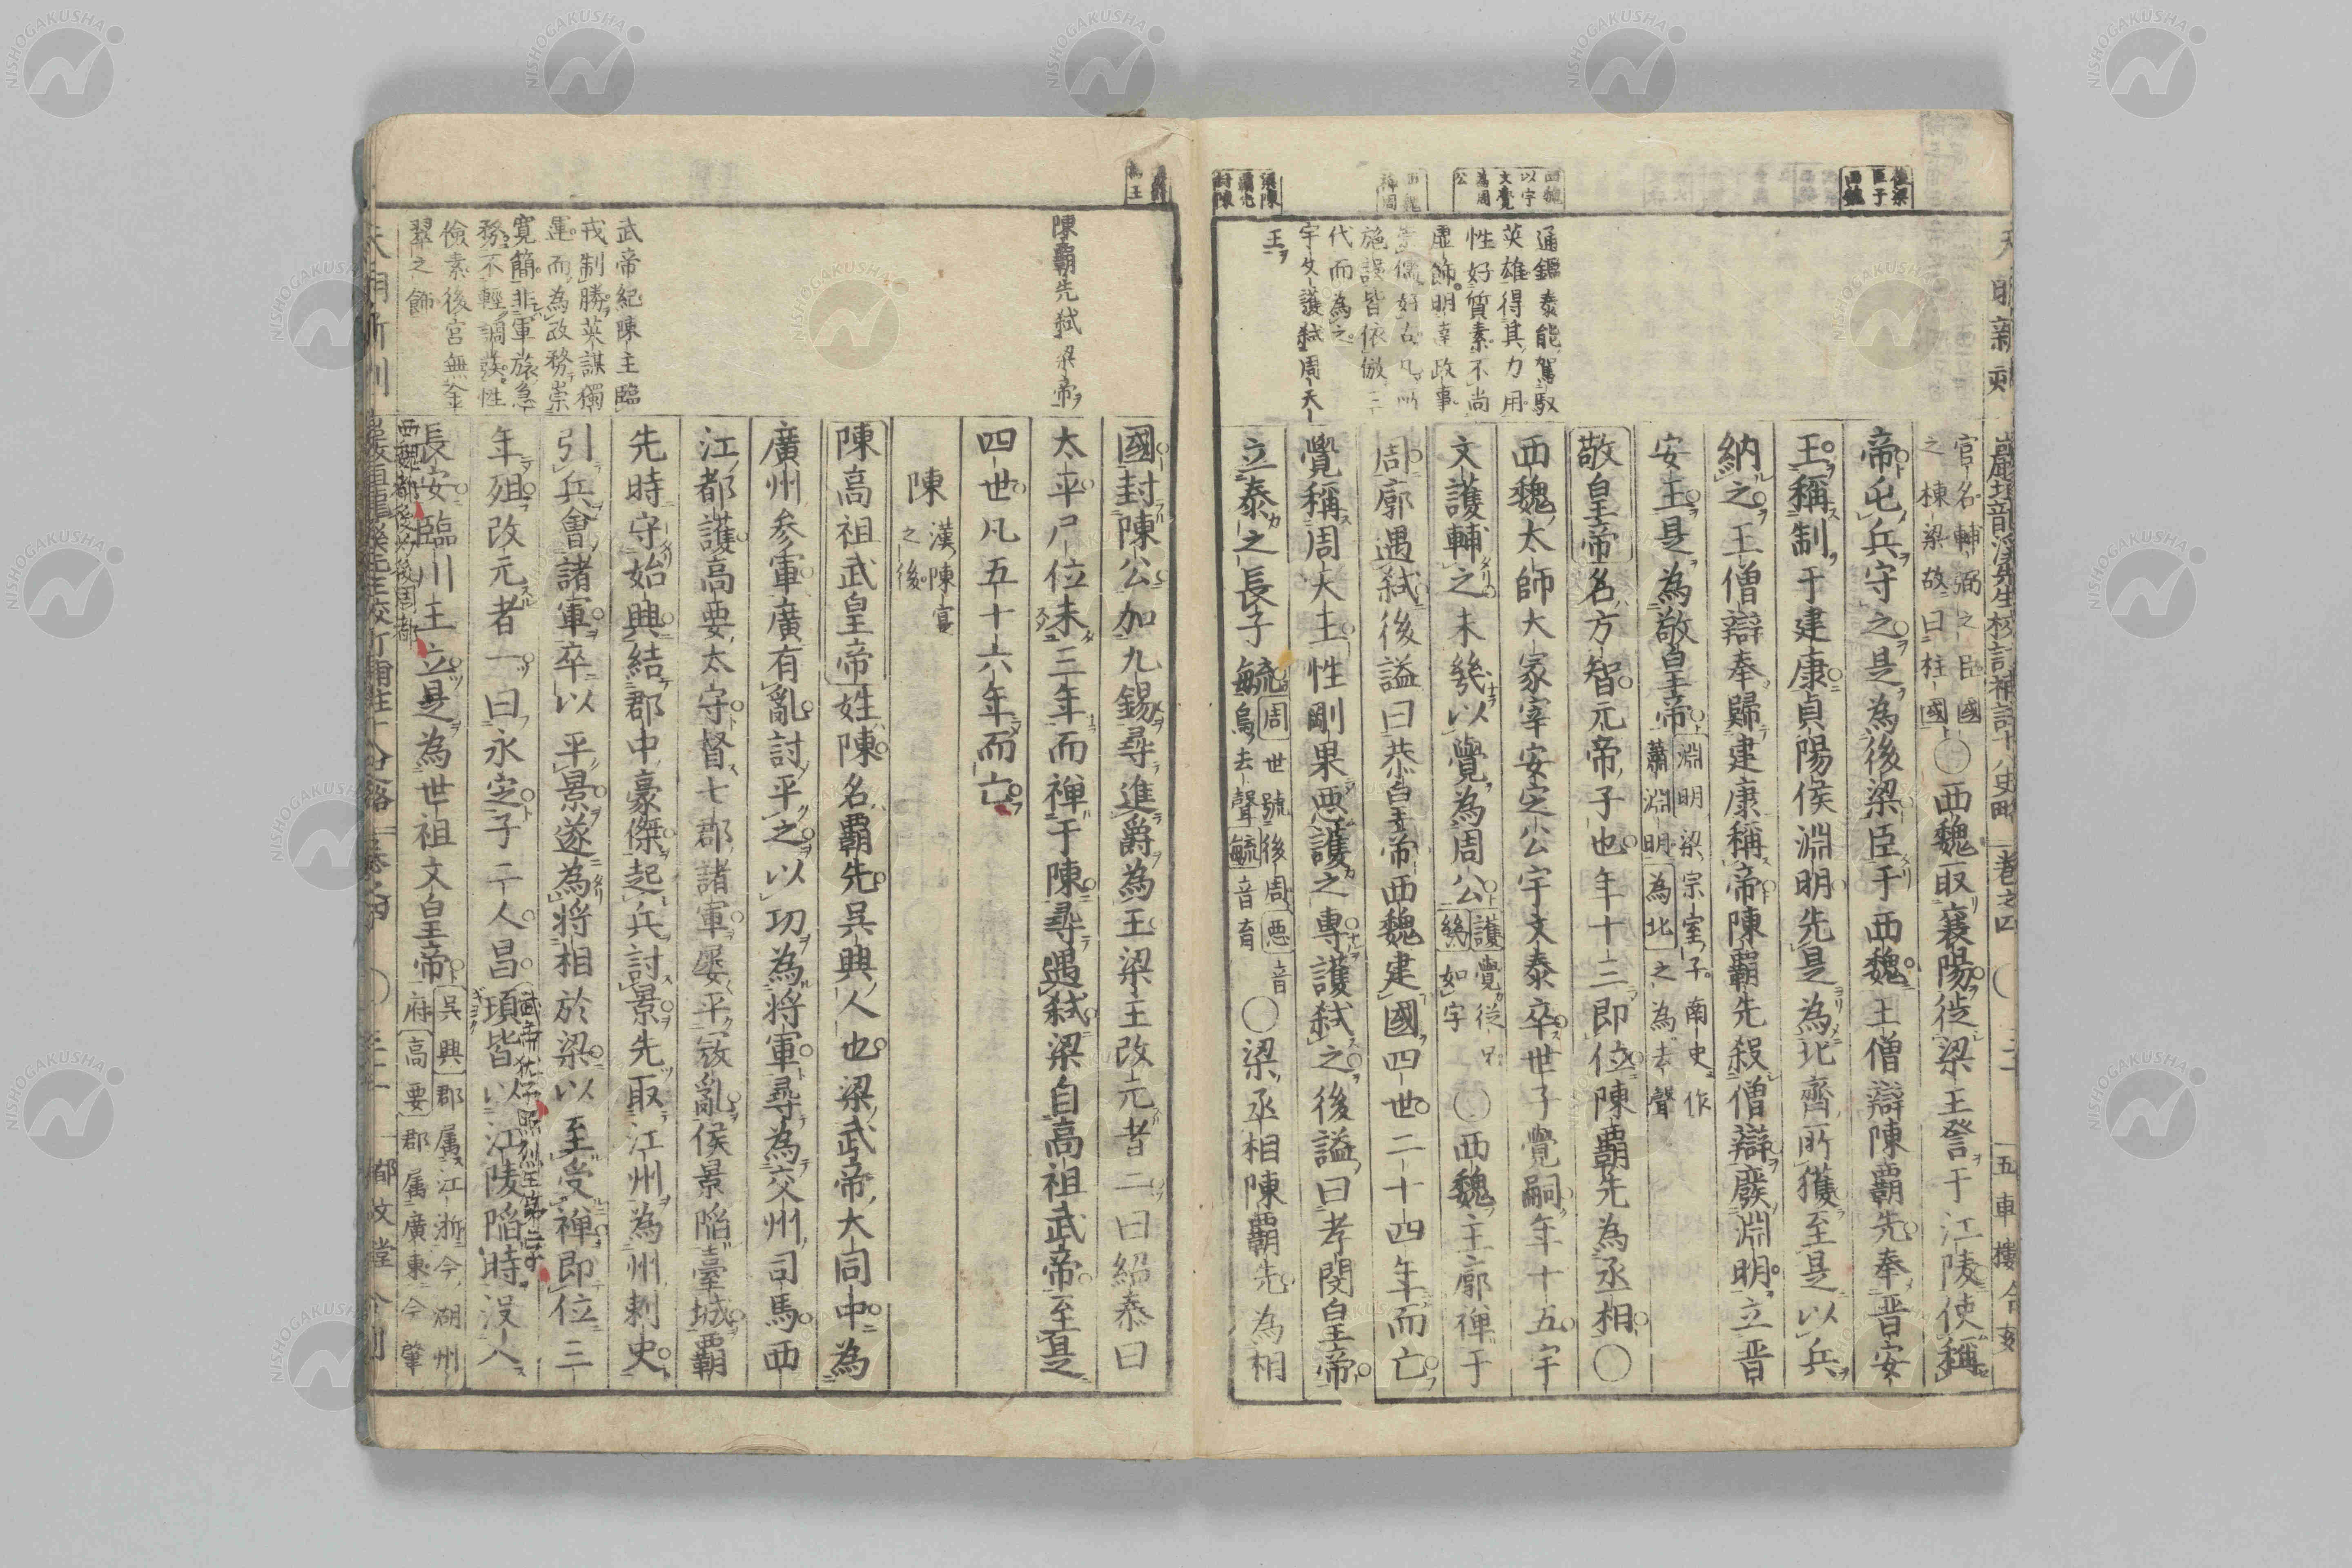 天明新刻
巖垣龍溪先生校訂補註十八史略 卷之四
五車樓合刻
後梁
臣于
西魏
西魏
以宇
文覺
為周
公
通鑑泰能駕馭
英雄得其力用
性好質素不尚
虛飾明達政事
崇儒好古凡所
施設皆依倣三
代而為之
宇文護弑周天
王
官名輔弼之臣國
之棟梁故曰柱國
○西魏取襄陽徙梁王詧于江陵使稱
帝屯兵守之是為後梁臣于西魏王僧辯陳霸先奉晉安
王稱制于建康貞陽侯淵明先是為北齊所獲至是以兵
納之王僧辯奉歸建康稱帝陳霸先殺僧辯廢淵明立晉
安王是為敬皇帝
淵明梁宗室子南史作
蕭淵明為北之為去聲
敬皇帝名方智元帝子也年十三即位陳霸先為丞相○
西魏太師大冢宰安定公宇文泰卒世子覺嗣年十五宇
文護輔之未幾以覺為周公
護覺從兄
幾如字
○西魏主廓禪于
周廓遇弑後諡曰恭皇帝西魏建國四世二十四年而亡
覺稱周天王性剛果惡護之專護弑之後諡曰孝閔皇帝
立泰之長子毓
周世號後周惡音
烏去聲毓音育
○梁丞相陳霸先為相
陳霸先弑梁帝
武帝紀陳主臨
戎制勝英謀獨
運而為政務崇
寬簡非軍旅急
務不輕調發性
儉素後宮無金
翠之飾
國封陳公加九錫尋進爵為王梁王改元者二曰紹泰曰
太平尸位未三年而禪于陳尋遇弑梁自高祖武帝至是
四世凡五十六年而亡
陳
漢陳寔
之後
陳高祖武皇帝姓陳名霸先吳興人也梁武帝大同中為
廣州參軍廣有亂討平之以功為將軍尋為交州司馬西
江都護高要太守督七郡諸軍屢平寇亂侯景陷臺城霸
先時守始興結郡中豪傑起兵討景先取江州為州刺史
引兵會諸軍卒以平景遂為將相於梁以至受禪即位三
年殂改元者一曰永定子二人昌頊皆以江陵陷時沒入
長安臨川王立是為世祖文皇帝
吳興郡属江浙今湖州
府高要郡属廣東今肇
郁文堂合刻